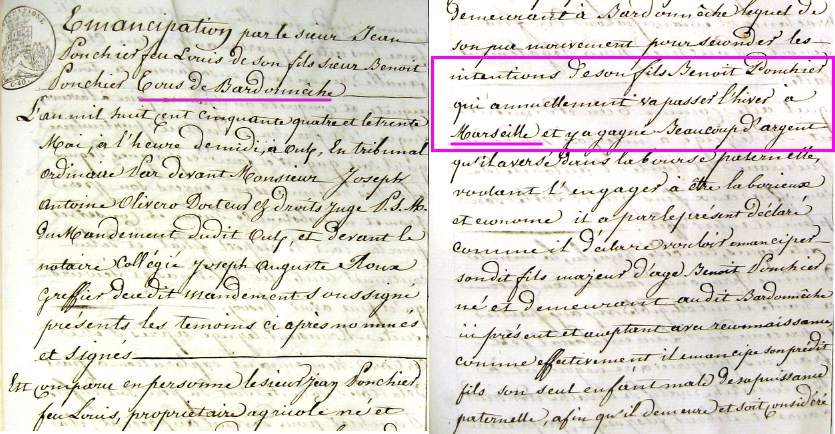 Emancipation par le sieur Jean
Ponchier feu Louis de son fils sieur Benoit
Ponchier Tous de Bardonnêche
L'an mil huit cent cinquante quatre et le trente
Mai, à l'heure de midi, à Oulx, En tribunal
ordinaire Par devant Monsieur Joseph
Antoine Olivero Docteur Ez droits Juge P.S.M.
du Mandement dudit Oulx, et devant le
notaire Collégié Joseph Auguste Roux
Greffier de cedit Mandement soussigné
présents les temoins ci après nommés
et signés
Est comparu en personne le sieur Jean Ponchier
feu Louis, propriétaire agricole né et
demeurant à Bardonnêche lequel de
son pur mouvement pour seconder les
intentions de son fils Benoit Ponchier
qui annuellement va passer l'hiver à
Marseille et y a gagné Beaucoup d'argent
qu'il a versé dans la bourse paternelle,
voulant l'engager à être laborieux
et econome il a par le présent déclaré
comme il déclare vouloir emanciper
son dit fils majeur d'age Benoit Ponchier
né et demeurant audit Bardonnêche
ici présent et aceptant avec reconnaissance
comme effectivement il emancipe son prédit
fils son seul enfant male de sa puissance
paternelle, afin qu'il demeure et soit considéré